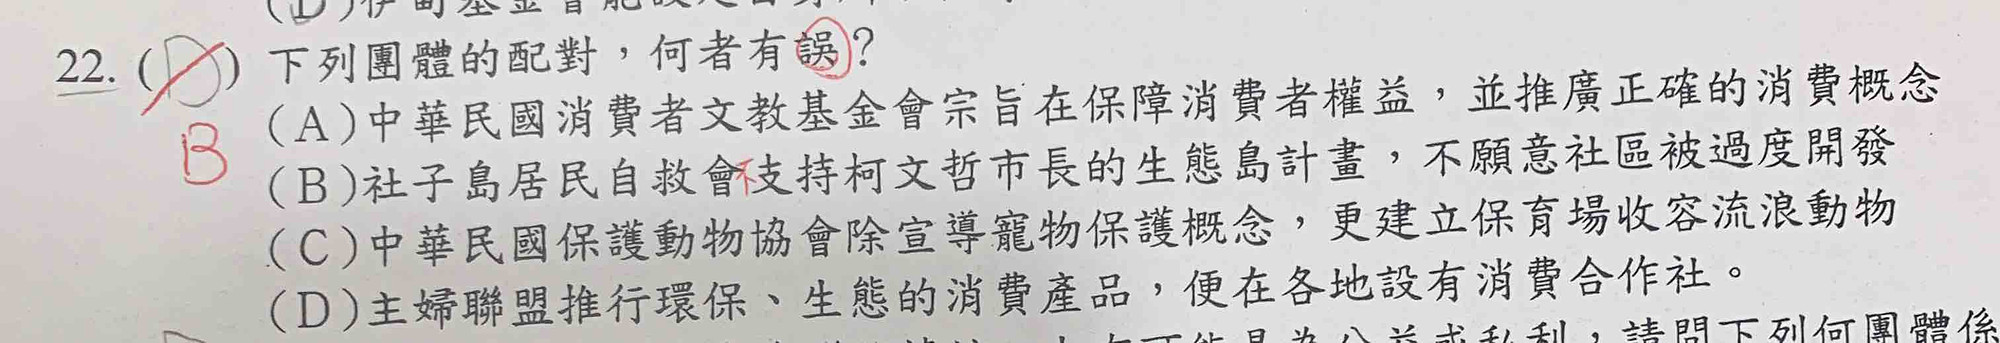 22. (D) 下列團體的配對，何者有誤？
B
(A)中華民國消費者文教基金會宗旨在保障消費者權益，並推廣正確的消費概念
(B)社子島居民自救會不支持柯文哲市長的生態島計畫，不願意社區被過度開發
(C)中華民國保護動物協會除宣導寵物保護概念，更建立保育場收容流浪動物
(D)主婦聯盟推行環保、生態的消費產品，便在各地設有消費合作社。
請問下列何團體係